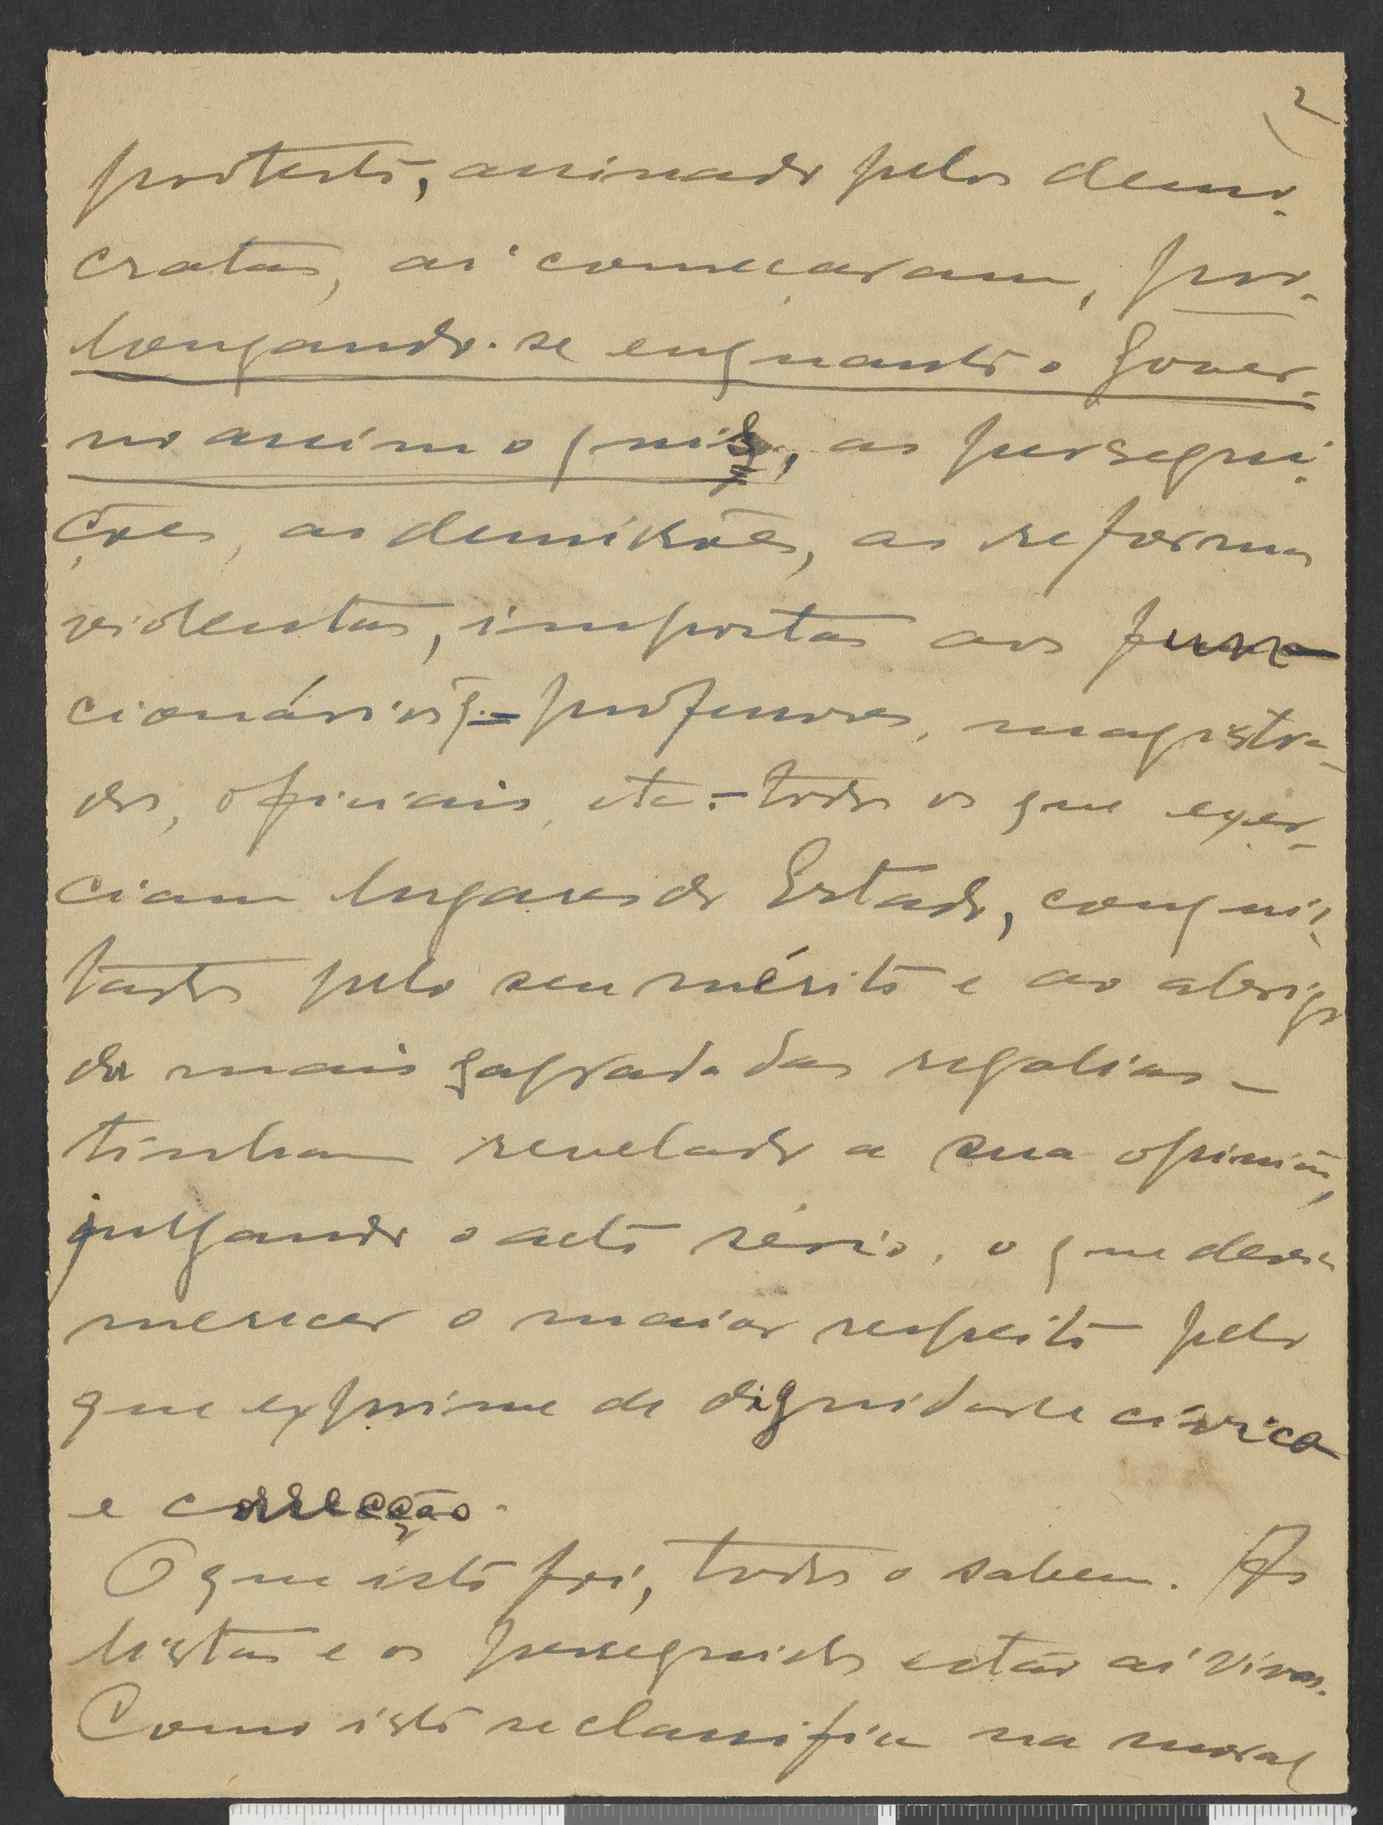 2
protesto, assinado pelos demo-
cratas, aí começaram, pro-
longando-se enquanto o Gover-
no assim o quis, as persegui-
ções, as demissões, as reformas
violentas, impostas aos fun-
cionários, - professores, magistra-
dos, oficiais, etc. - todos os que exer-
ciam lugares do Estado, conquis-
tados pelo seu mérito e ao abrigo
da mais sagrada das regalias -
tinham revelado a sua opinião,
julgando o acto sério, o que devia
merecer o maior respeito pelo
que exprime de dignidade cívica
e correcção.
O que isto foi, todos o sabem. As
listas e os perseguidos estão aí vivos.
Como isto se classifica na moral